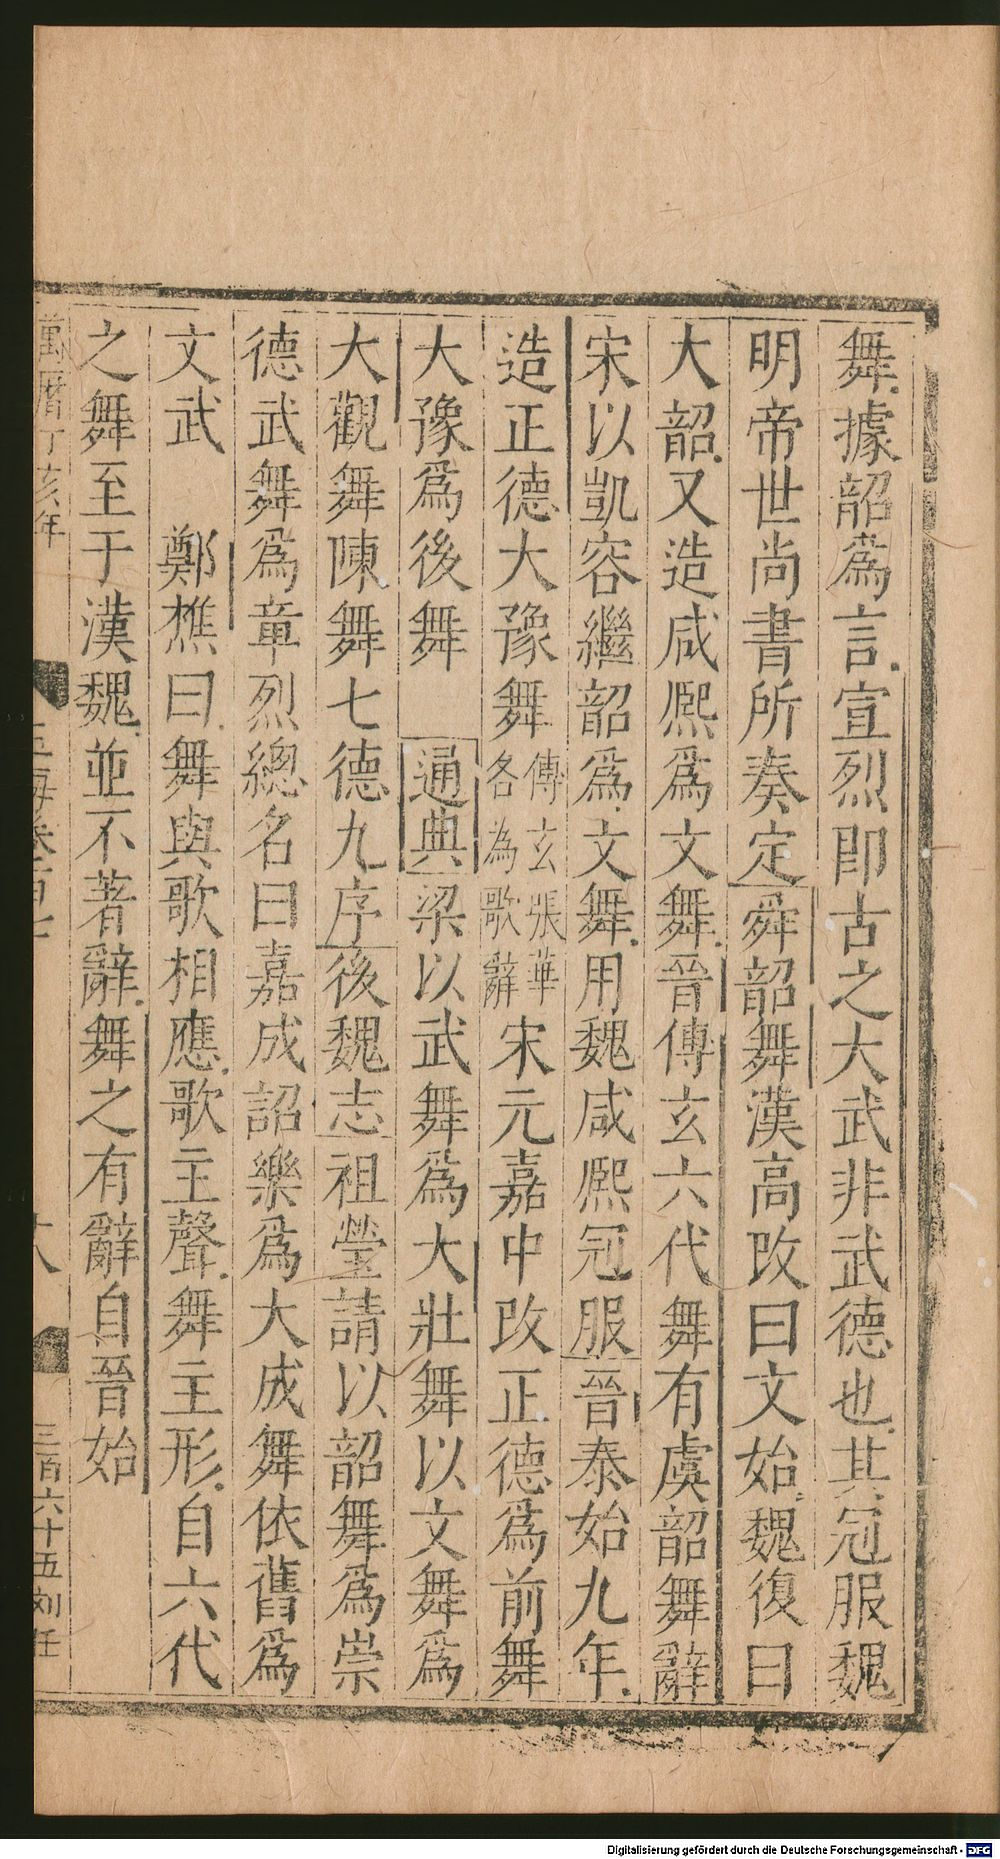 舞據韶爲言宣烈即古之大武非武德也其冠服魏
明帝世尚書所奏定舜韶舞漢高改曰文始魏復曰
大韶又造咸熙爲文舞晉傳玄六代舞有虞韶舞辭
宋以凱容繼韶爲文舞用魏咸熙冠服晉泰始九年
造正德大豫舞傳玄張華各為歌辭宋元嘉中改正德爲前舞
大豫爲後舞 通典梁以武舞爲大壯舞以文舞爲
大觀舞陳舞七德九序後魏志祖瑩請以韶舞爲崇
德武舞爲章烈總名曰嘉成詔樂爲大成舞依舊爲
文武 鄭樵曰舞與歌相應歌主聲舞主形自六代
之舞至于漢魏並不著辭舞之有辭自晉始
萬曆丁亥年
玉海卷百七
十八
三百六十五刘任
Digitalisierung gefördert durch die Deutsche Forschungsgemeinschaft - DFG